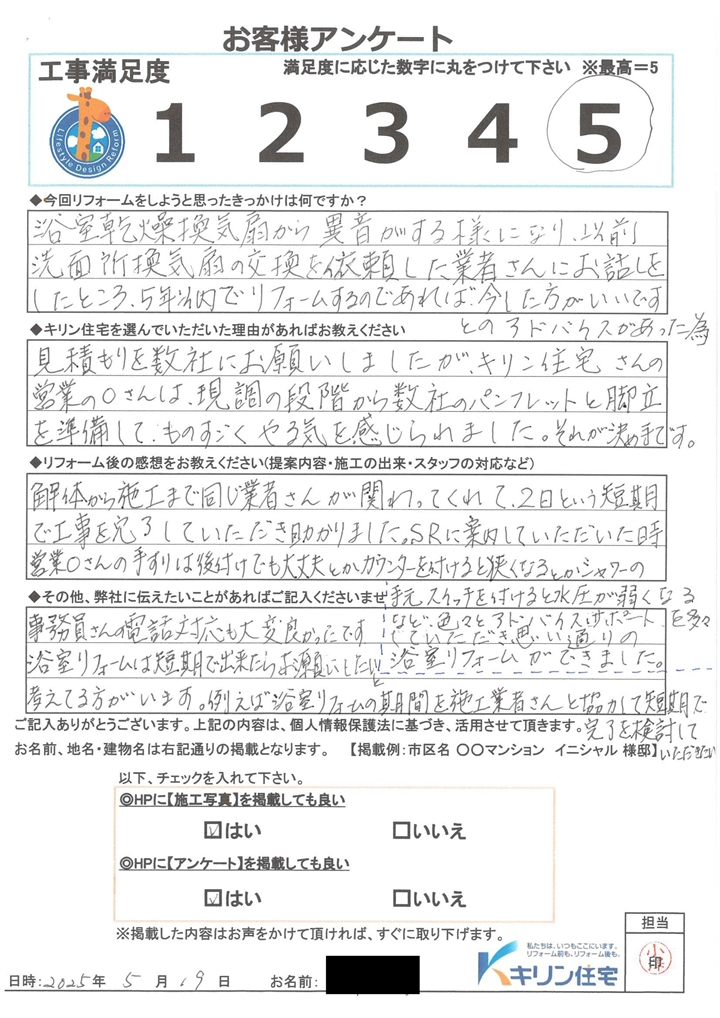 お客様アンケート
工事満足度
満足度に応じた数字に丸をつけて下さい ※最高=5
Lifestyle Design Reform
1 2 3 4 5
◆今回リフォームをしようと思ったきっかけは何ですか?
浴室乾燥換気扇から異音がする様になり、以前
洗面所換気扇の交換を依頼した業者さんにお話しを
したところ、5年以内でリフォームするのであれば、今した方がいいです
とのアドバイスがあった為
◆キリン住宅を選んでいただいた理由があればお教えください
見積もりを数社にお願いしましたが、キリン住宅さんの
営業の○さんは、現調の段階から数社のパンフレットと脚立
を準備して、ものすごくやる気を感じられました。それが決め手です。
◆リフォーム後の感想をお教えください(提案内容・施工の出来・スタッフの対応など)
解体から施工まで同じ業者さんが関わってくれて、2日という短期間
で工事を完了していただき助かりました。SRに案内していただいた時
営業○さんの手すりは後付けでも大丈夫とか、カウンターを付けると狭くなるとか、シャワーの
手元スイッチを付けると水圧が弱くなる
など、色々とアドバイス、サポートを多々
していただき思い通りの
浴室リフォームができました。
◆その他、弊社に伝えたいことがあればご記入くださいませ
事務員さんの電話対応も大変良かったです
浴室リフォームは短期間で出来たらお願いしたいと
考えてる方がいます。例えば浴室リフォームの期間を施工業者さんと協力して短期で
完了を検討して
いただきたい
ご記入ありがとうございます。上記の内容は、個人情報保護法に基づき、活用させて頂きます。
お名前、地名・建物名は右記通りの掲載となります。 【掲載例:市区名 ○○マンション イニシャル 様邸】
以下、チェックを入れて下さい。
◎HPに【施工写真】を掲載しても良い
☑はい □いいえ
◎HPに【アンケート】を掲載しても良い
☑はい □いいえ
※掲載した内容はお声をかけて頂ければ、すぐに取り下げます。
担当
印
私たちは、いつもここにいます。
リフォーム前も、リフォーム後も。
キリン住宅
日時:2025年 5月 19日 お名前: